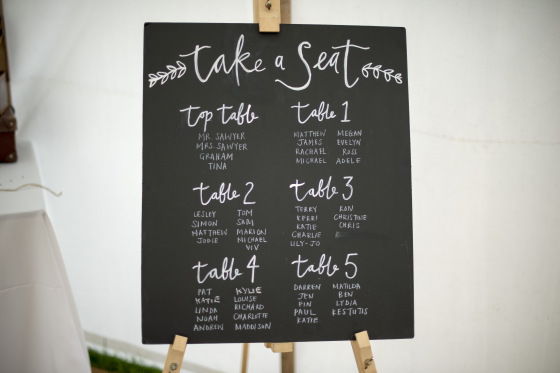 take a seat
top table
MR. SAWYER
MRS. SAWYER
GRAHAM
TINA
table 1
MATTHEW MEGAN
JAMES EVELYN
RACHAEL ROSS
MICHAEL ADELE
table 2
LESLEY TOM
SIMON SAM
MATTHEW MARION
JODIE MICHAEL
VIV
table 3
TERRY RON
KERRI CHRISTINE
KATIE CHRIS
CHARLIE
LILY-JO
table 4
PAT KYLIE
KATIE LOUISE
LINDA RICHARD
NOAH CHARLOTTE
ANDREW MADDISON
table 5
DARREN MATILDA
JEN BEN
FIN LYDIA
PAUL KESTUTIS
KATIE